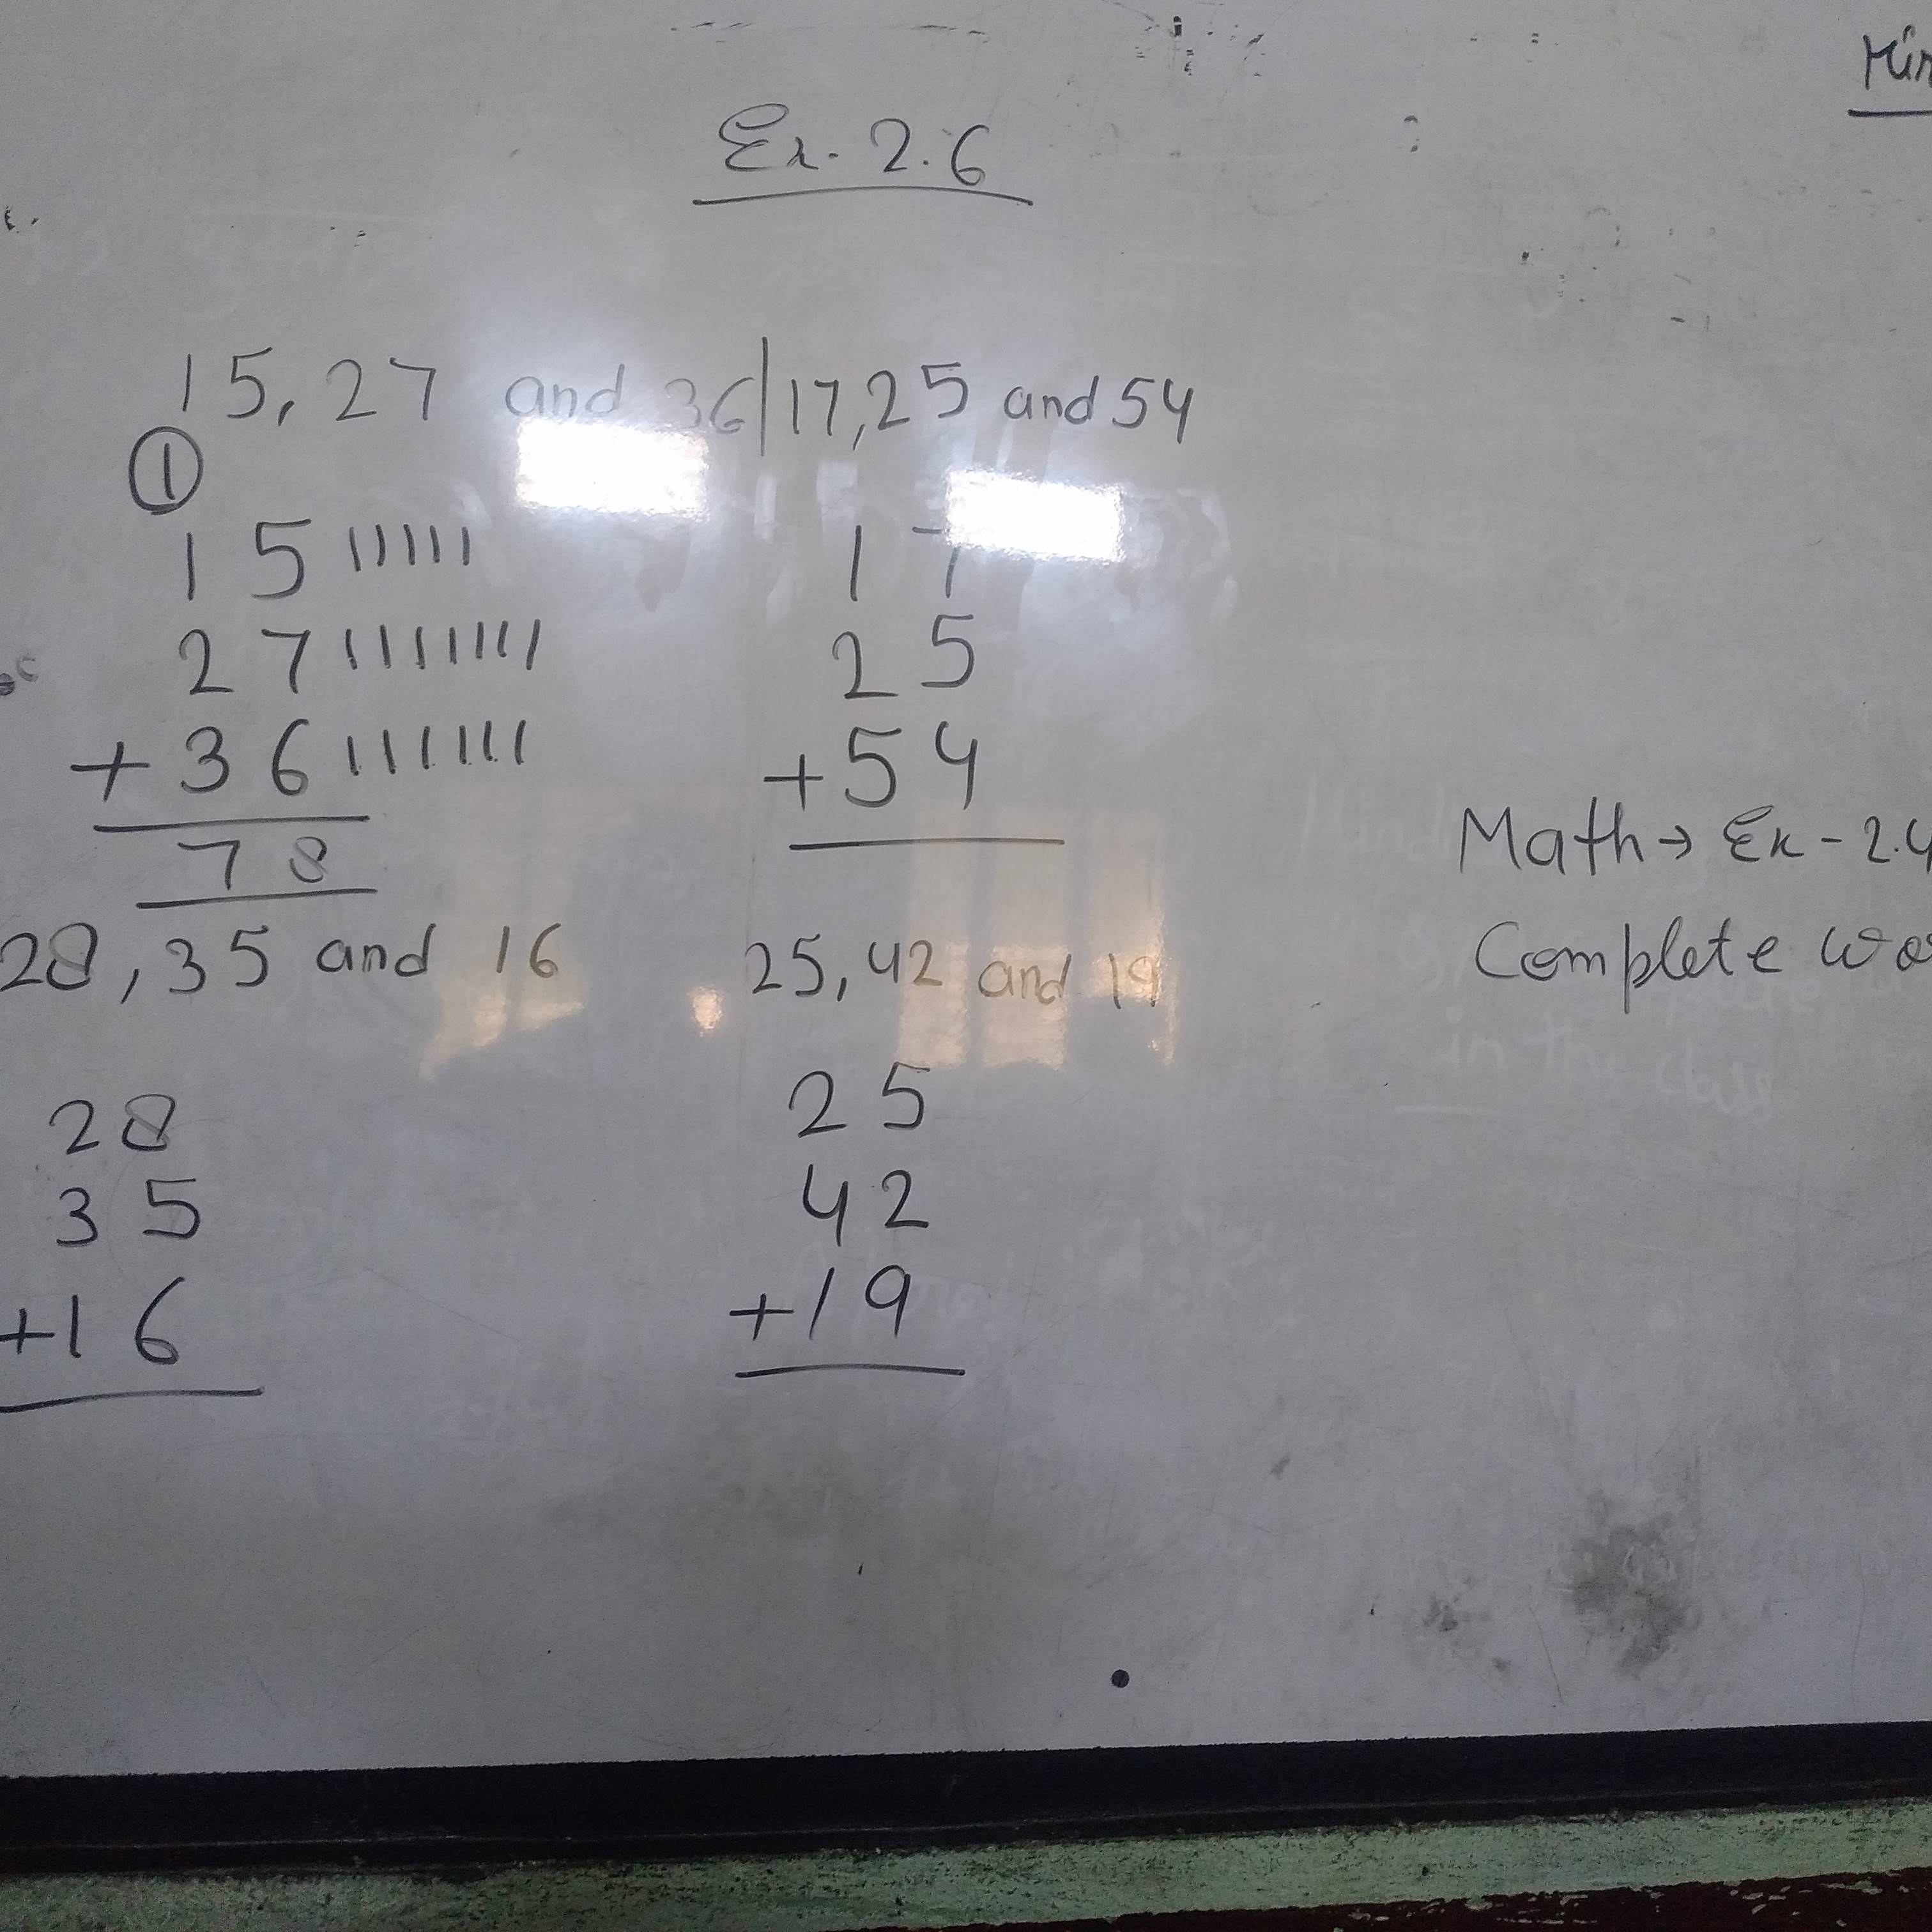 Ex. 2.6
15, 27 and 36 | 17, 25 and 54
①
15 |||||
27 ||||||||
+ 36 |||||||
78
17
25
+ 54
28, 35 and 16
28
35
+16
25, 42 and 19
25
42
+19
Math → Ex - 2.4
Complete
in the class